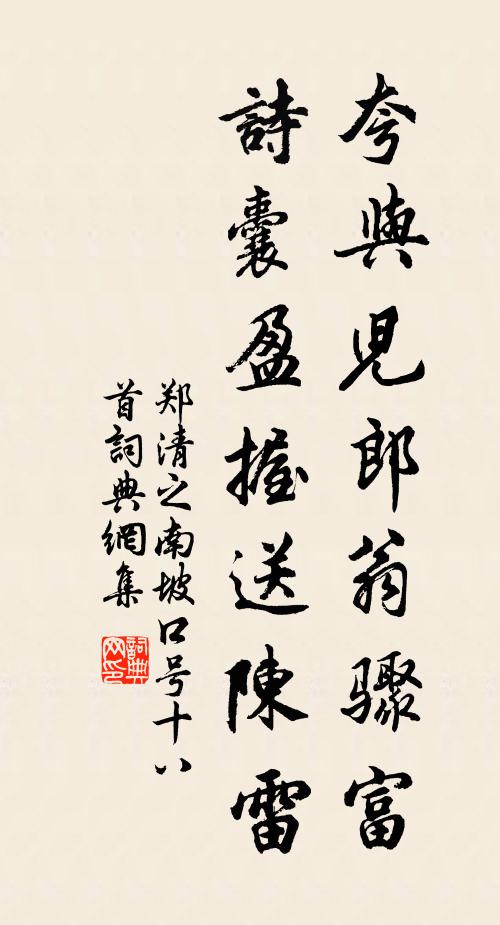 夸與兒郎翁驟富
詩囊盈握送陳雷
郑清之南坡口号十八
首詞典網集
詞典網印